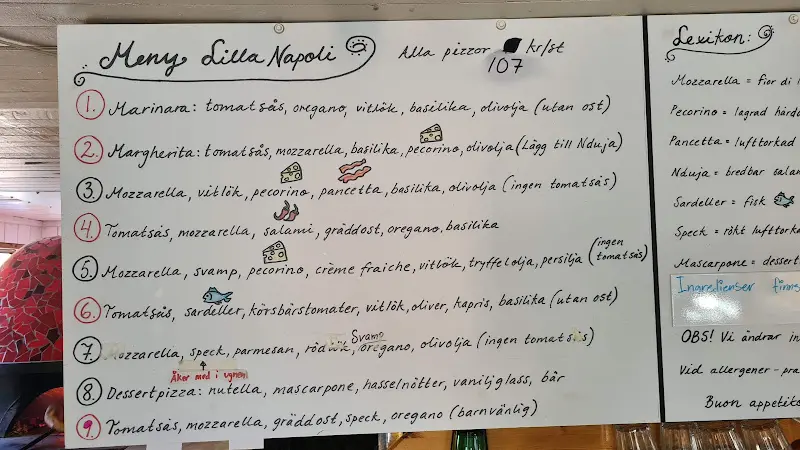 Meny Lilla Napoli
Alla pizzor kr/st
107
1. Marinara: tomatsås, oregano, vitlök, basilika, olivolja (utan ost)
2. Margherita: tomatsås, mozzarella, basilika, pecorino, olivolja (Lägg till Nduja)
3. Mozzarella, vitlök, pecorino, pancetta, basilika, olivolja (ingen tomatsås)
4. Tomatsås, mozzarella, salami, gräddost, oregano, basilika
5. Mozzarella, svamp, pecorino, crème fraiche, vitlök, tryffelolja, persilja (ingen tomatsås)
6. Tomatsås, sardeller, körsbärstomater, vitlök, oliver, kapris, basilika (utan ost)
Svamp
7. Mozzarella, speck, parmesan, rödlök, oregano, olivolja (ingen tomatsås)
Åker med i ugnen
8. Dessertpizza: nutella, mascarpone, hasselnötter, vaniljglass, bär
9. Tomatsås, mozzarella, gräddost, speck, oregano (barnvänlig)
Lexikon:
Mozzarella = fior di l
Pecorino = lagrad hård
Pancetta = lufttorkad
Nduja = bredbar sala
Sardeller = fisk
Speck = rökt lufttorka
Mascarpone = dessert
Ingredienser finns
OBS! Vi ändrar in
Vid allergener - pra
Buon appetito